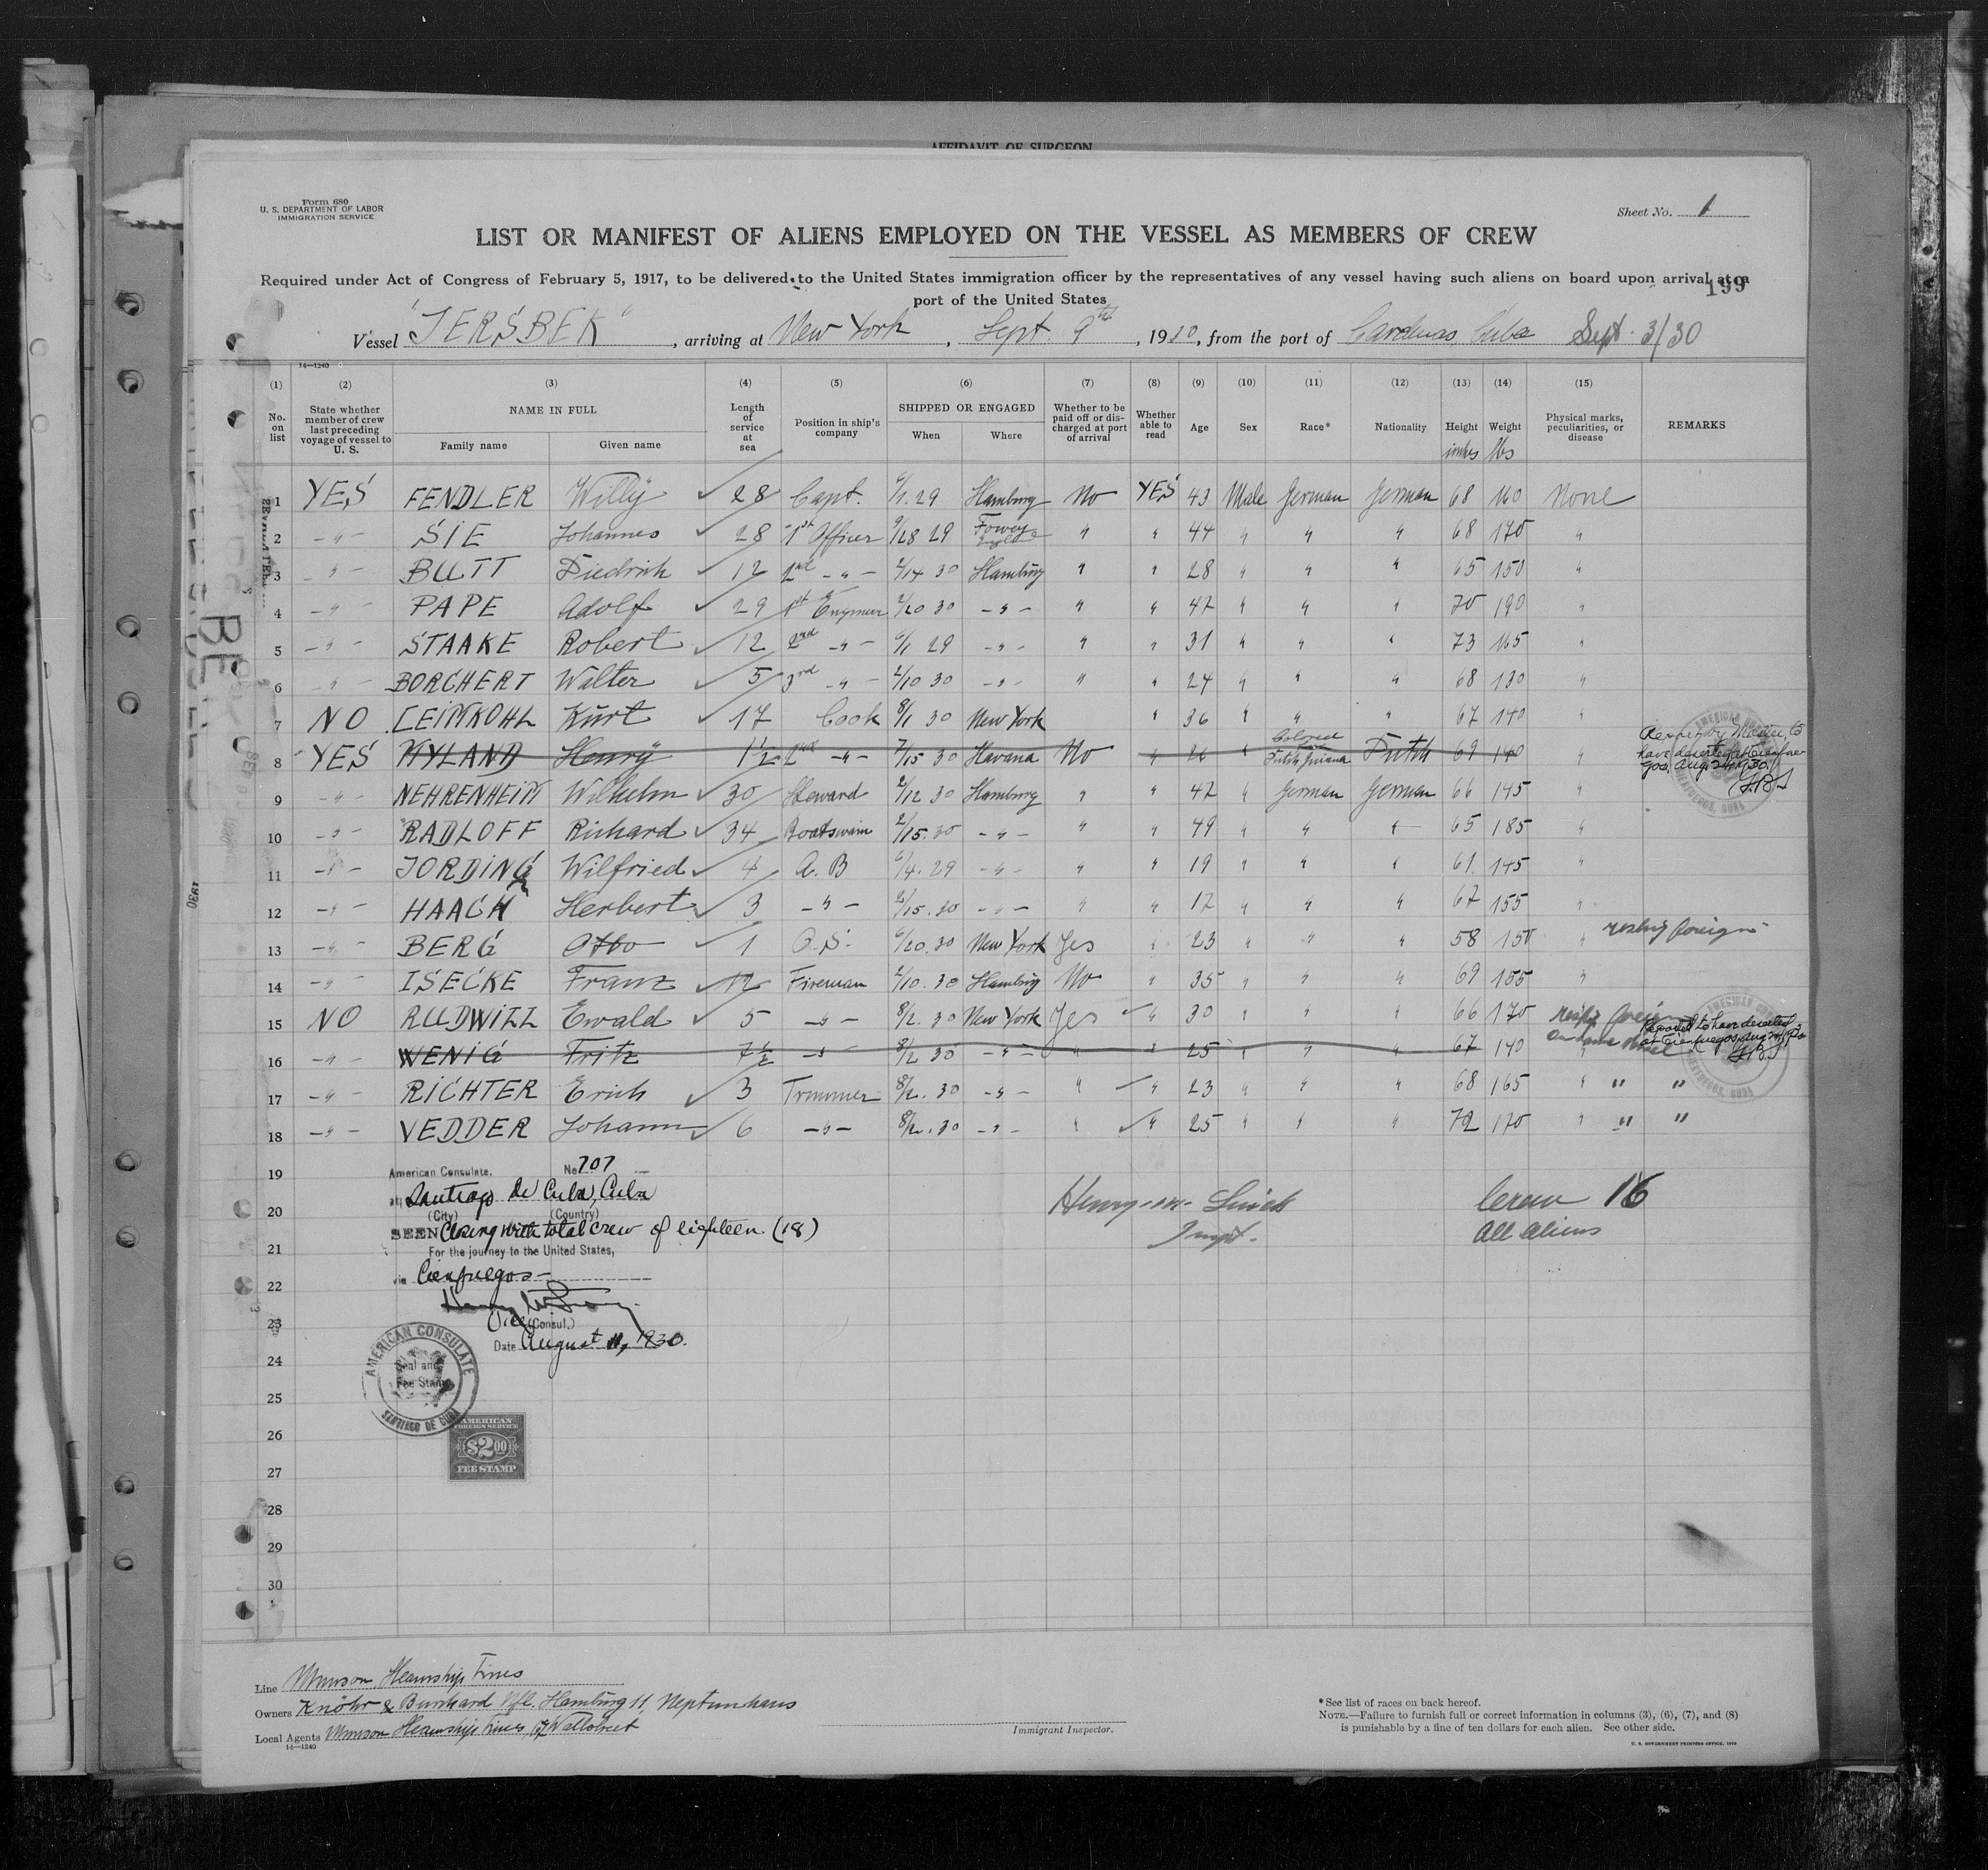 AFFIDAVIT OF SURGEON
Form 680
U. S. DEPARTMENT OF LABOR
IMMIGRATION SERVICE
Sheet No. 1
LIST OR MANIFEST OF ALIENS EMPLOYED ON THE VESSEL AS MEMBERS OF CREW
Required under Act of Congress of February 5, 1917, to be delivered to the United States immigration officer by the representatives of any vessel having such aliens on board upon arrival at a
port of the United States
199
Vessel "JERSBEK", arriving at New York, Sept. 9th, 1930, from the port of Cardenas, Cuba Sept. 3/30
14—1240
(1) (2) (3) (4) (5) (6) (7) (8) (9) (10) (11) (12) (13) (14) (15)
No. on list | State whether member of crew last preceding voyage of vessel to U. S. | NAME IN FULL | Length of service at sea | Position in ship's company | SHIPPED OR ENGAGED | Whether to be paid off or discharged at port of arrival | Whether able to read | Age | Sex | Race* | Nationality | Height inches | Weight lbs | Physical marks, peculiarities, or disease | REMARKS
Family name | Given name | When | Where
1 YES FENDLER Willy 28 Capt. 6/1. 29 Hamburg No YES 43 Male German German 68 160 None
2 -"- SIE Johannes 28 1st Officer 9/28 29 Fowey " " 44 " " " 68 170 "
3 -"- BUTT Diedrich 12 2nd -"- 2/14 30 Hamburg " " 28 " " " 65 150 "
4 -"- PAPE Adolf 29 1st Engineer 2/20 30 -"- " " 47 " " " 70 190 "
5 -"- STAAKE Robert 12 2nd -"- 6/1 29 -"- " " 31 " " " 73 165 "
6 -"- BORCHERT Walter 5 3rd -"- 2/10 30 -"- " " 24 " " " 68 130 "
7 NO LEIMKOHL Kurt 17 Cook 8/1 30 New York " 36 " " " 67 140 "
8 YES HYLAND Henry 1½ 2nd -"- 7/15 30 Havana No " 26 " Colored Dutch Guiana Dutch 69 140 "
Report by Master, to
have deserted at Cienfue-
gos, Aug. 24, 1930.
9 -"- NEHRENHEIM Wilhelm 30 Steward 2/12 30 Hamburg " " 47 " German German 66 145 "
10 -"- RADLOFF Richard 34 Boatswain 2/15. 30 -"- " " 49 " " " 65 185 "
11 -"- JORDING Wilfried 4 A. B 6/4. 29 -"- " " 19 " " " 61. 145 "
12 -"- HAACK Herbert 3 -"- 2/15. 30 -"- " " 17 " " " 67 155 "
13 -"- BERG Otto 1 O.S. 6/20. 30 New York Yes " 23 " " " 58 150 " reship foreign
14 -"- ISECKE Franz 12 Fireman 2/10. 30 Hamburg No " 35 " " " 69 155 "
15 NO RUDWILL Ewald 5 -"- 8/2. 30 New York Yes " 30 " " " 66 170 reship foreign
on same vessel
16 -"- WENIG Fritz 7½ -"- 8/2 30 -"- " " 25 " " " 67 140 "
Reported to have deserted
at Cienfuegos, Aug.
17 -"- RICHTER Erich 3 Trimmer 8/2. 30 -"- " " 23 " " " 68 165 " " "
18 -"- VEDDER Johann 6 -"- 8/2. 30 -"- " " 25 " " " 72 170 " " "
19
American Consulate, No. 707
at Santiago de Cuba, Cuba
20
(City) (Country)
SEEN Closing with total crew of eighteen. (18)
21
For the journey to the United States,
via Cienfuegos
22
Vice (Consul.)
23
Date August 11, 1930.
24
AMERICAN CONSULATE
Seal and
Fee Stamp
SANTIAGO DE CUBA
25
AMERICAN
FOREIGN SERVICE
$2.00
FEE STAMP
26
27
28
29
30
Inspt.
Crew 16
All Aliens
Line Munson Steamship Lines
Owners Knöhr & Burchard Nfl. Hamburg 11, Neptunhaus
Local Agents Munson Steamship Lines, 67 Wallstreet
14—1240
Immigrant Inspector.
*See list of races on back hereof.
NOTE.—Failure to furnish full or correct information in columns (3), (6), (7), and (8)
is punishable by a fine of ten dollars for each alien. See other side.
U. S. GOVERNMENT PRINTING OFFICE, 1929